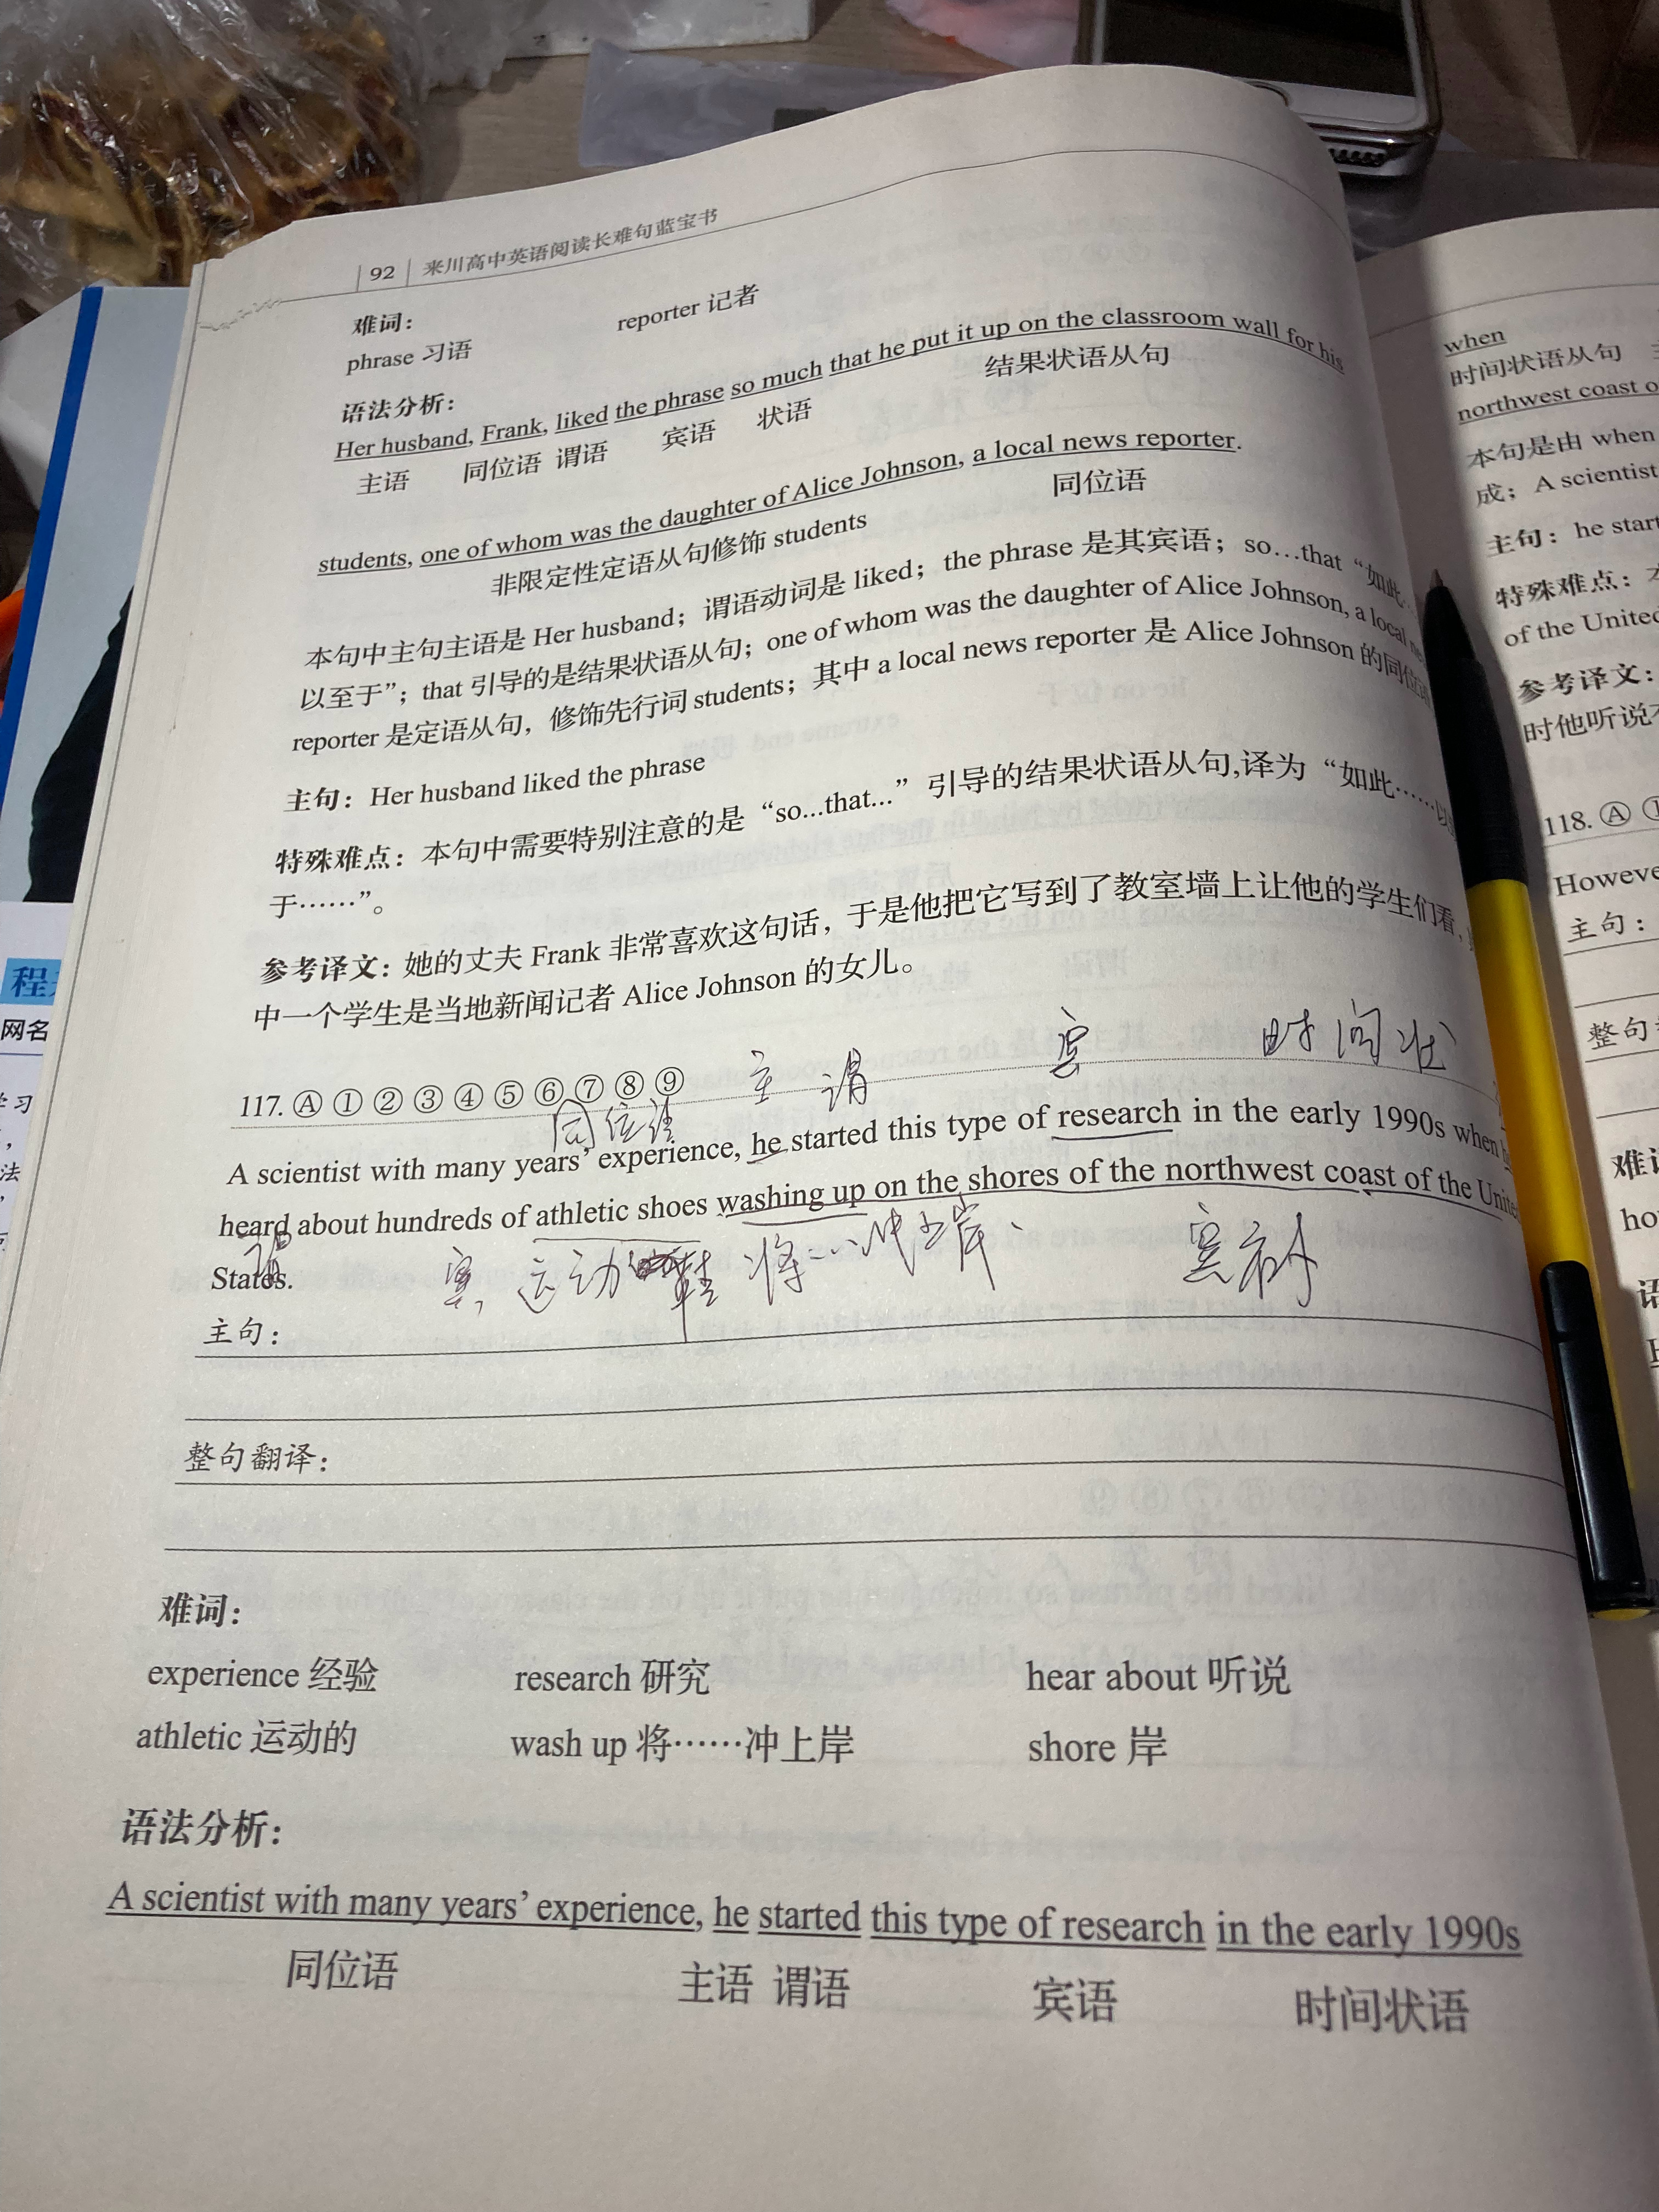 92 来川高中英语阅读长难句蓝宝书
难词：
phrase 习语 reporter 记者
语法分析：
Her husband, Frank, liked the phrase so much that he put it up on the classroom wall for his
主语 同位语 谓语 宾语 状语 结果状语从句
students, one of whom was the daughter of Alice Johnson, a local news reporter.
非限定性定语从句修饰 students 同位语
本句中主句主语是 Her husband；谓语动词是 liked；the phrase 是其宾语；so…that “如此…
以至于”；that 引导的是结果状语从句；one of whom was the daughter of Alice Johnson, a local
reporter 是定语从句，修饰先行词 students；其中 a local news reporter 是 Alice Johnson 的同位语
主句：Her husband liked the phrase
特殊难点：本句中需要特别注意的是“so...that...”引导的结果状语从句,译为“如此……以
于……”。
参考译文：她的丈夫 Frank 非常喜欢这句话，于是他把它写到了教室墙上让他的学生们看，
中一个学生是当地新闻记者 Alice Johnson 的女儿。
117. Ⓐ ① ② ③ ④ ⑤ ⑥ ⑦ ⑧ ⑨
同位语 主 谓 宾 时间状
A scientist with many years’ experience, he started this type of research in the early 1990s when
heard about hundreds of athletic shoes washing up on the shores of the northwest coast of the Unite
谓 宾 运动 鞋 将……冲上岸 宾补
States.
主句：
整句翻译：
难词：
experience 经验 research 研究 hear about 听说
athletic 运动的 wash up 将……冲上岸 shore 岸
语法分析：
A scientist with many years’ experience, he started this type of research in the early 1990s
同位语 主语 谓语 宾语 时间状语
when
时间状语从句
northwest coast o
本句是由 when
成；A scientist
主句：he start
特殊难点：
of the United
参考译文：
时他听说
118. Ⓐ
Howeve
主句：
整句
难
ho
语
程
网名
学习
法